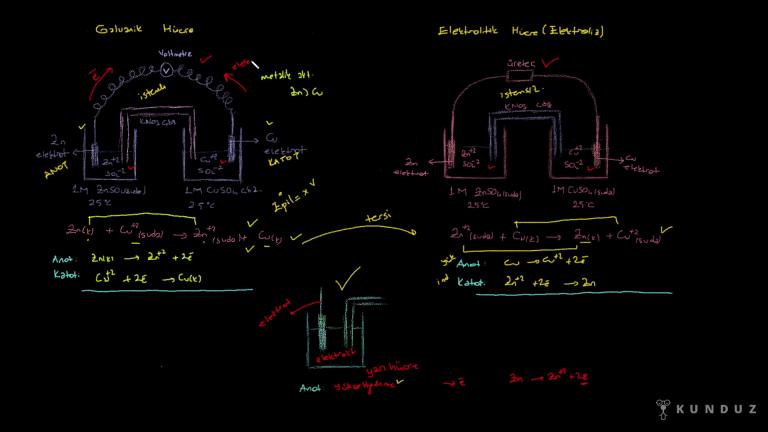 Galvanik Hücre
Voltmetre
ē
istemli
metalik akt.
Zn > Cu
KNO3 çöz.
Zn
elektrot
ANOT
Zn+2
SO4-2
Cu+2
SO4-2
Cu
elektrot
KATOT
1M ZnSO4(suda)
25°C
1M CuSO4 çöz.
25°C
E°pil = x V
Zn(k) + Cu+2(suda) → Zn+2(suda) + Cu(k)
Anot: Zn(k) → Zn+2 + 2ē
Katot: Cu+2 + 2ē → Cu(k)
tersi
Elektrolitik Hücre (Elektroliz)
üreteç
istemsiz
KNO3 çöz.
Zn
elektrot
Zn+2
SO4-2
Cu+2
SO4-2
Cu
elektrot
1M ZnSO4(suda)
25°C
1M CuSO4(suda)
25°C
Zn+2(suda) + Cu(k) → Zn(k) + Cu+2(suda)
yük Anot: Cu → Cu+2 + 2ē
ind Katot: Zn+2 + 2ē → Zn
elektrot
elektrolit
yarı hücre
Anot: yükseltgenme
→ ē
Zn → Zn+2 + 2ē
KUNDUZ